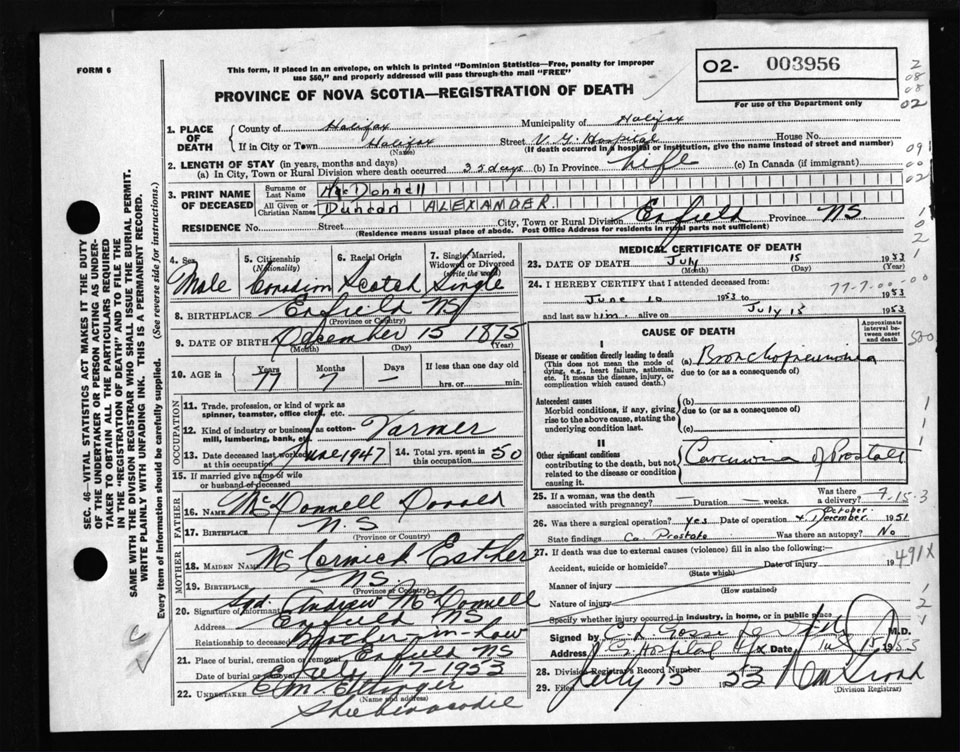 FORM 6
This form, if placed in an envelope, on which is printed "Dominion Statistics—Free, penalty for improper
use $50," and properly addressed will pass through the mail "FREE"
O2- 003956
For use of the Department only
PROVINCE OF NOVA SCOTIA—REGISTRATION OF DEATH
2
08
08
02
091
00
02
SEC. 46—VITAL STATISTICS ACT MAKES IT THE DUTY
OF THE UNDERTAKER OR PERSON ACTING AS UNDER-
TAKER TO OBTAIN ALL THE PARTICULARS REQUIRED
IN THE "REGISTRATION OF DEATH" AND TO FILE THE
SAME WITH THE DIVISION REGISTRAR WHO SHALL ISSUE THE BURIAL PERMIT.
WRITE PLAINLY WITH UNFADING INK. THIS IS A PERMANENT RECORD.
Every item of information should be carefully supplied. (See reverse side for instructions.)
1. PLACE OF DEATH
County of Halifax Municipality of Halifax
If in City or Town Halifax Street V. G. Hospital House No.
(Name) (If death occurred in a hospital or institution, give the name instead of street and number)
2. LENGTH OF STAY (in years, months and days)
(a) In City, Town or Rural Division where death occurred 35 days (b) In Province Life (c) In Canada (if immigrant)
3. PRINT NAME OF DECEASED
Surname or Last Name MacDonnell
All Given or Christian Names Duncan ALEXANDER
RESIDENCE No. Street City, Town or Rural Division Enfield Province NS
(Residence means usual place of abode. Post Office Address for residents in rural parts not sufficient)
4. Sex Male
5. Citizenship (Nationality) Canadian
6. Racial Origin Scotch
7. Single, Married, Widowed or Divorced (write the word) Single
8. BIRTHPLACE Enfield NS
(Province or Country)
9. DATE OF BIRTH December 15 1875
(Month) (Day) (Year)
10. AGE in Years 77 Months 7 Days — If less than one day old
hrs. or min.
OCCUPATION
11. Trade, profession, or kind of work as
spinner, teamster, office clerk, etc.
12. Kind of industry or business as cotton-
mill, lumbering, bank, etc. Farmer
13. Date deceased last worked at this occupation June 1947
14. Total yrs. spent in this occupation 50
15. If married give name of wife
or husband of deceased
FATHER
16. NAME McDonnell Donald
17. BIRTHPLACE N.S
(Province or Country)
MOTHER
18. MAIDEN NAME McCormick Esther
19. BIRTHPLACE NS.
(Province or Country)
20. Signature of informant Sgd. Andrew McDonnell
Address Enfield NS
Relationship to deceased Brother-in-law
21. Place of burial, cremation or removal Enfield NS
Date of burial or removal July 17-1953
22. UNDERTAKER E M. Ettinger
(Name and address)
Shubenacadie
MEDICAL CERTIFICATE OF DEATH
23. DATE OF DEATH July 15 1953
(Month) (Day) (Year)
24. I HEREBY CERTIFY that I attended deceased from:
June 10 1953 to 1953
77-7.00
and last saw him alive on July 15 1953
CAUSE OF DEATH
Approximate interval between onset and death
500
I
Disease or condition directly leading to death
(This does not mean the mode of
dying, e.g., heart failure, asthenia,
etc. It means the disease, injury, or
complication which caused death.)
(a) Bronchopneumonia
due to (or as a consequence of)
Antecedent causes
Morbid conditions, if any, giving
rise to the above cause, stating the
underlying condition last.
(b)
due to (or as a consequence of)
(c)
II
Other significant conditions
contributing to the death, but not
related to the disease or condition
causing it.
Carcinoma of Prostate
25. If a woman, was the death
associated with pregnancy? Duration — weeks. Was there a delivery?
7.15.3
26. Was there a surgical operation? yes Date of operation October + December 1951
State findings Ca. Prostate Was there an autopsy? No
27. If death was due to external causes (violence) fill in also the following:—
Accident, suicide or homicide? Date of injury 19
(State which)
491X
Manner of injury
(How sustained)
Nature of injury
Specify whether injury occurred in industry, in home, or in public place
Signed by C. L. Gosse M.D.
Address V G Hospital Hfx Date July 15 1953
28. Division Registrar's Record Number
29. Filed July 15 1953
(Division Registrar)